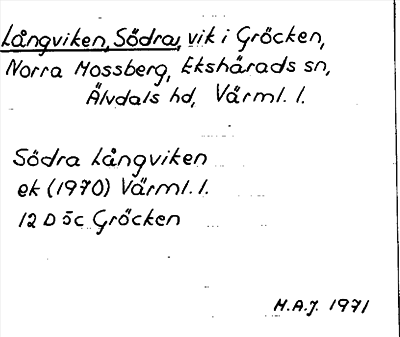 Långviken, Södra, vik i Gröcken,
Norra Mossberg, Ekshärads sn,
Älvdals hd, Värml. l.
Södra Långviken
ek (1970) Värml. l.
12 D 5c Gröcken
H.A.J. 1971